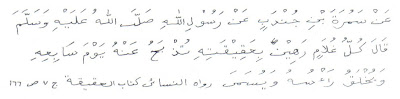 عَنْ سَمُرَةَ بْنِ جُنْدَبٍ عَنْ رَسُوْلِ اللهِ صَلَّى اللهُ عَلَيْهِ وَسَلَّمَ
قَالَ كُلُّ غُلَامٍ رَهِيْنٌ بِعَقِيْقَتِهِ تُذْبَحُ عَنْهُ يَوْمَ سَابِعِهِ
وَيُحْلَقُ رَأْسُهُ وَيُسَمَّى رواه النسائى كتاب العقيقة ج ٧ ص